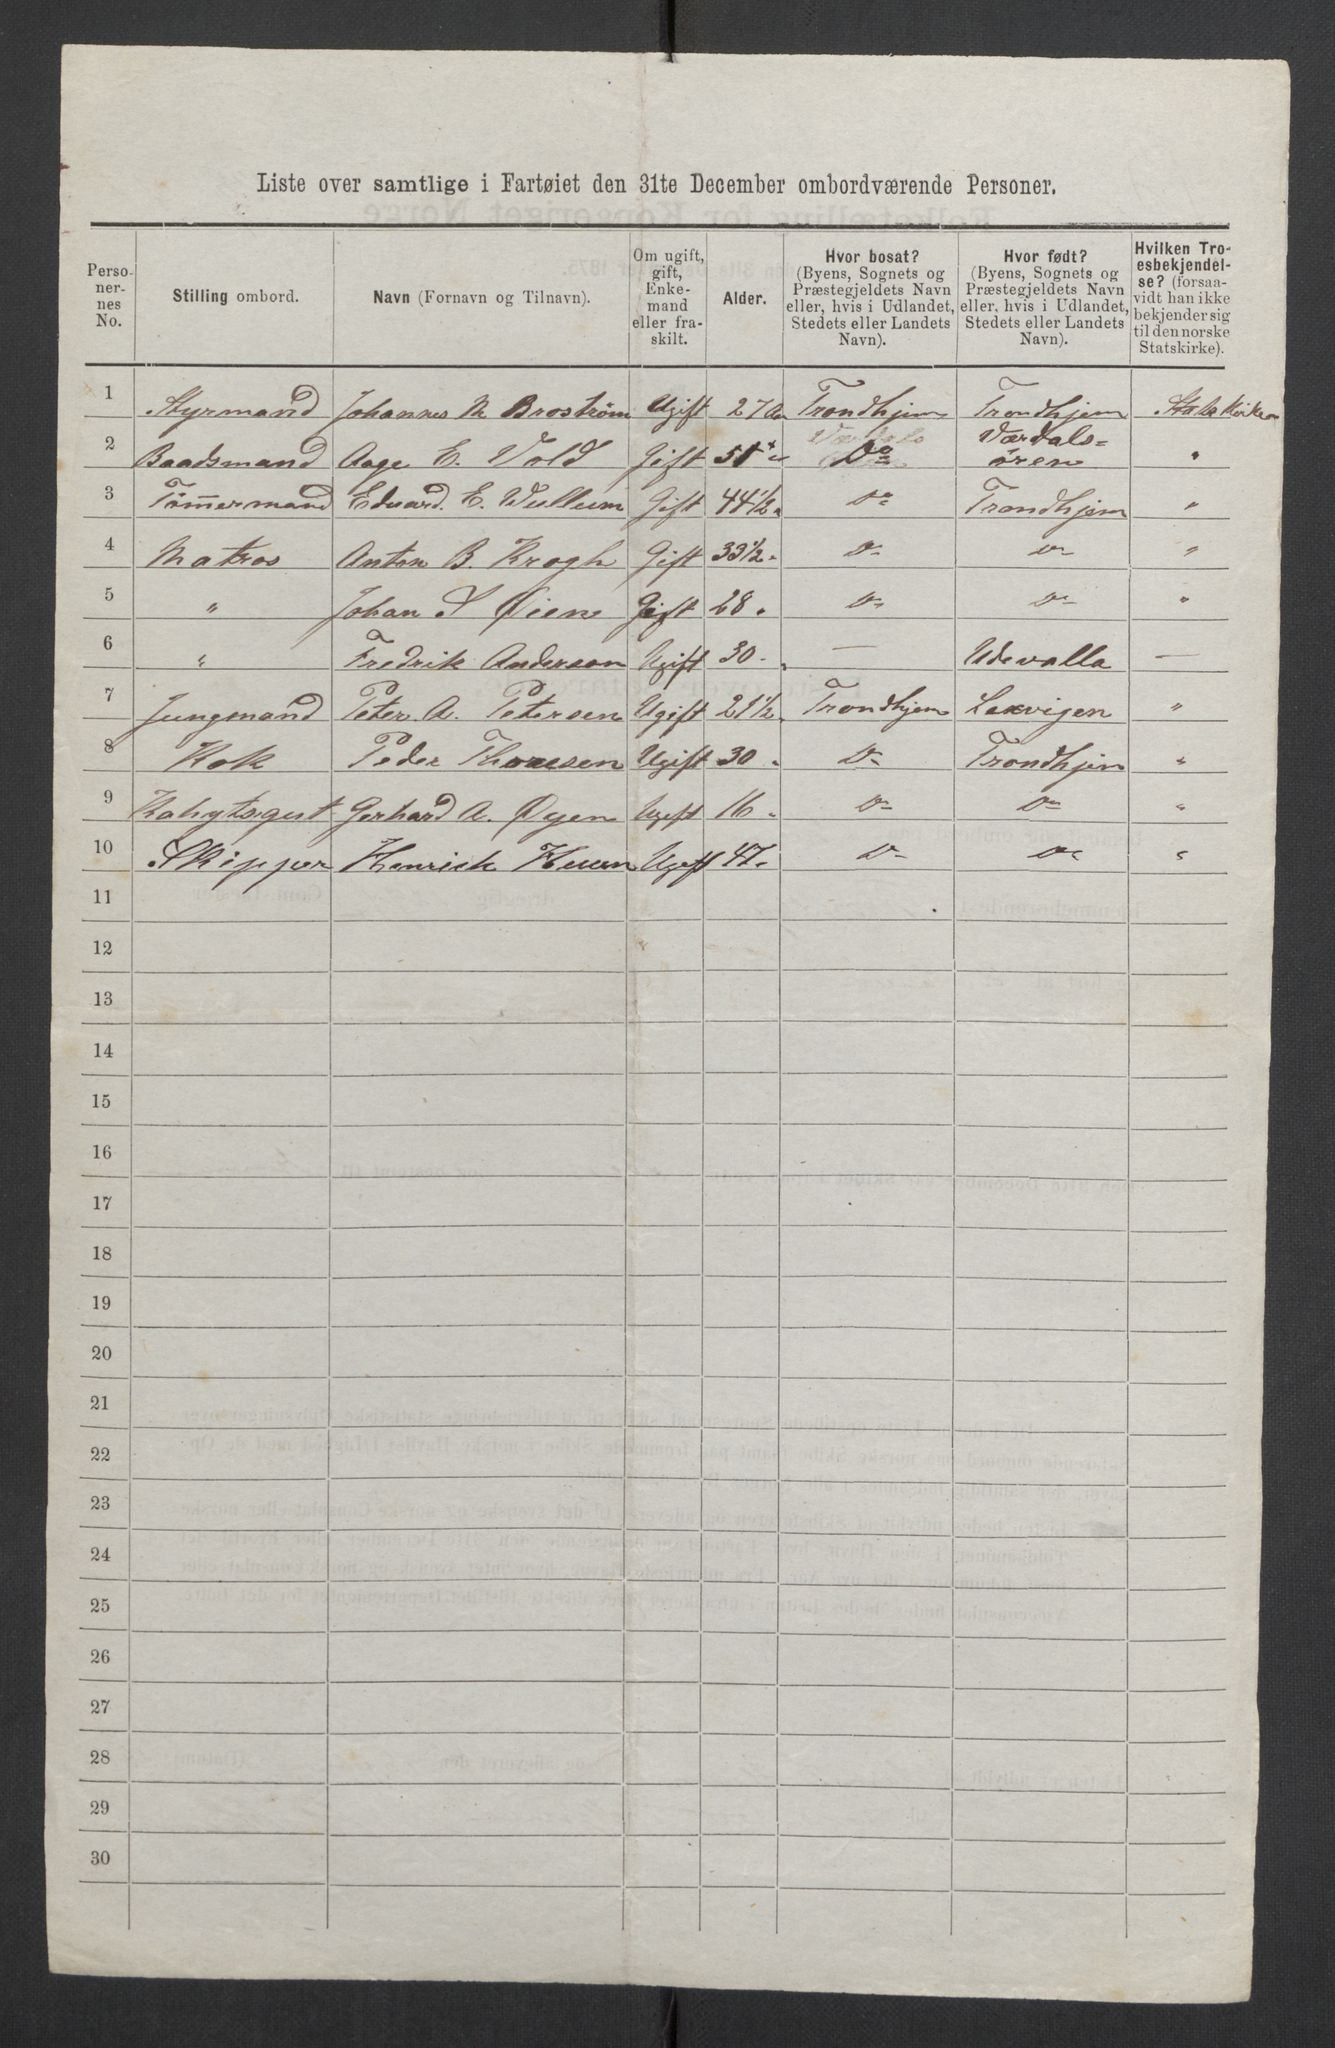 Liste over samtlige i Fartøiet den 31te December ombordværende Personer.
Perso-
ner-
nes
No.
Stilling ombord.
Navn (Fornavn og Tilnavn).
Om ugift,
gift,
Enke-
mand
eller fra-
skilt.
Alder.
Hvor bosat?
(Byens, Sognets og
Præstegjeldets Navn
eller, hvis i Udlandet,
Stedets eller Landets
Navn).
Hvor født?
(Byens, Sognets og
Præstegjeldets Navn
eller, hvis i Udlandet,
Stedets eller Landets
Navn).
Hvilken Tro-
esbekjendel-
se? (forsaa-
vidt han ikke
bekjender sig
til den norske
Statskirke).
1 Styrmand Johannes M Broström Ugift 27 Trondhjem Trondhjem Statskirken
2 Baadsmand Aage E. Vold Gift 51 Do Værdals=
ören "
3 Tömmermand Eduard. E. Wullum Gift 44 1/2 Do Trondhjem "
4 Matros Anton B. Krogh Gift 33 1/2 Do Do "
5 " Johan S Øien Gift 28 Do Do "
6 " Fredrik Anderson Ugift 30 — Udevalla —
7 Jungmand Peter. A. Petersen Ugift 21 1/2 Trondhjem Laxvigen "
8 Kok Peder Thoresen Ugift 30 Do Trondhjem "
9 Kahytsgut Gerhard A. Øyen Ugift 16 Do Do "
10 Skipper Henrick Huun Ugift 47 Do Do "
11
12
13
14
15
16
17
18
19
20
21
22
23
24
25
26
27
28
29
30